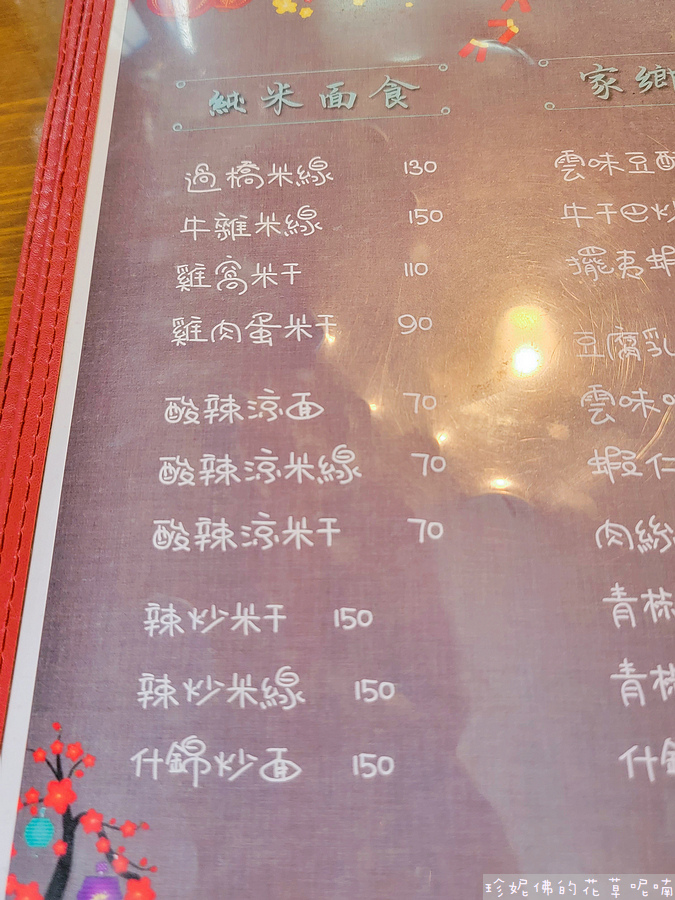 純米面食
過橋米線 130
牛雜米線 150
雞窩米干 110
雞肉蛋米干 90
酸辣涼面 70
酸辣涼米線 70
酸辣涼米干 70
辣炒米干 150
辣炒米線 150
什錦炒面 150
家鄉
雲味豆酥
牛干巴炒
擺夷蝦
豆腐乳
雲味
蝦仁
肉絲
青椒
青椒
什錦
珍妮佛的花草呢喃